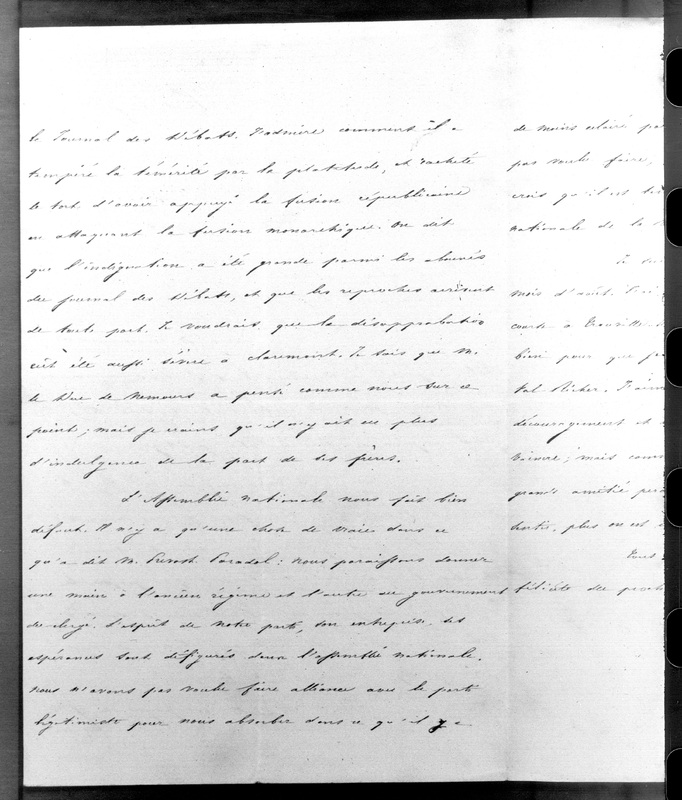 le Journal des Débats. J'admire comment il a
tempéré la témérité par la platitude, et racheté
le tort d'avoir appuyé la fusion républicaine
en attaquant la fusion monarchique. On dit
que l'indignation a été grande parmi les abonnés
du Journal des Débats, et que les reproches arrivent
de toute part. Je voudrais que la désapprobation
eût été aussi sévère à Claremont. Je sais que M.
le Duc de Nemours a pensé comme nous sur ce
point; mais je crains qu'il n'y ait eu plus
d'indulgence de la part de ses frères.
L'Assemblée nationale nous fait bien
défaut. Il n'y a qu'une chose de vraie dans ce
qu'a dit M. Prevost Paradol: nous paraissons donner
une main à l'ancien régime et l'autre au gouvernement
du clergé. L'esprit de notre parti, son entreprise, ses
espérances sont défigurés dans l'assemblée nationale.
Nous n'avons pas voulu faire alliance avec le parti
légitimiste pour nous absorber dans ce qu'il y a
de moins éclairé
pas voulu faire,
crois qu'il est
nationale de la
mois d'août.
courte à Trouville
bien pour que
Val Richer.
découragement et
vaincre; mais
grande amitié
sentir, plus on est
Tous
félicité du